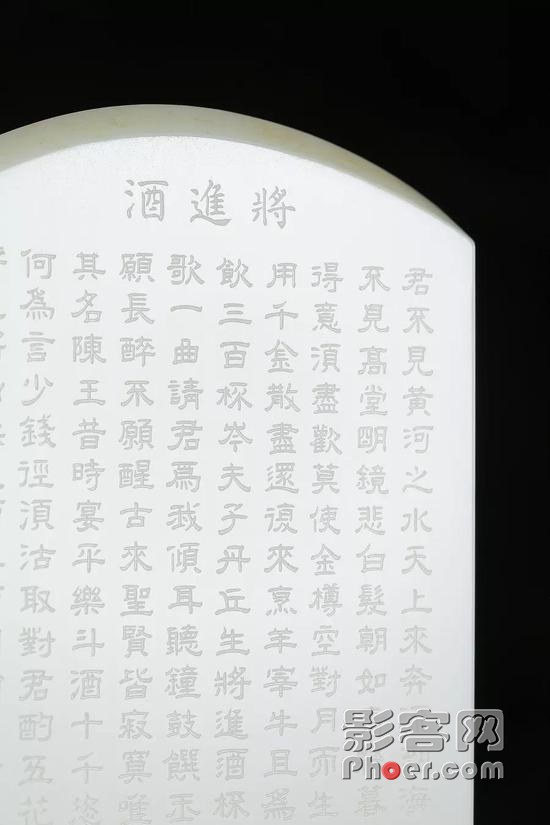 將進酒
君不見黃河之水天上來奔海
不見高堂明鏡悲白髮朝如暮
得意須盡歡莫使金樽空對月而生
用千金散盡還復來烹羊宰牛且爲
飲三百杯岑夫子丹丘生將進酒杯
歌一曲請君爲我傾耳聽鐘鼓饌玉
願長醉不願醒古來聖賢皆寂寞唯
其名陳王昔時宴平樂斗酒十千恣
何爲言少錢徑須沽取對君酌五花
影客网
Phoer.com